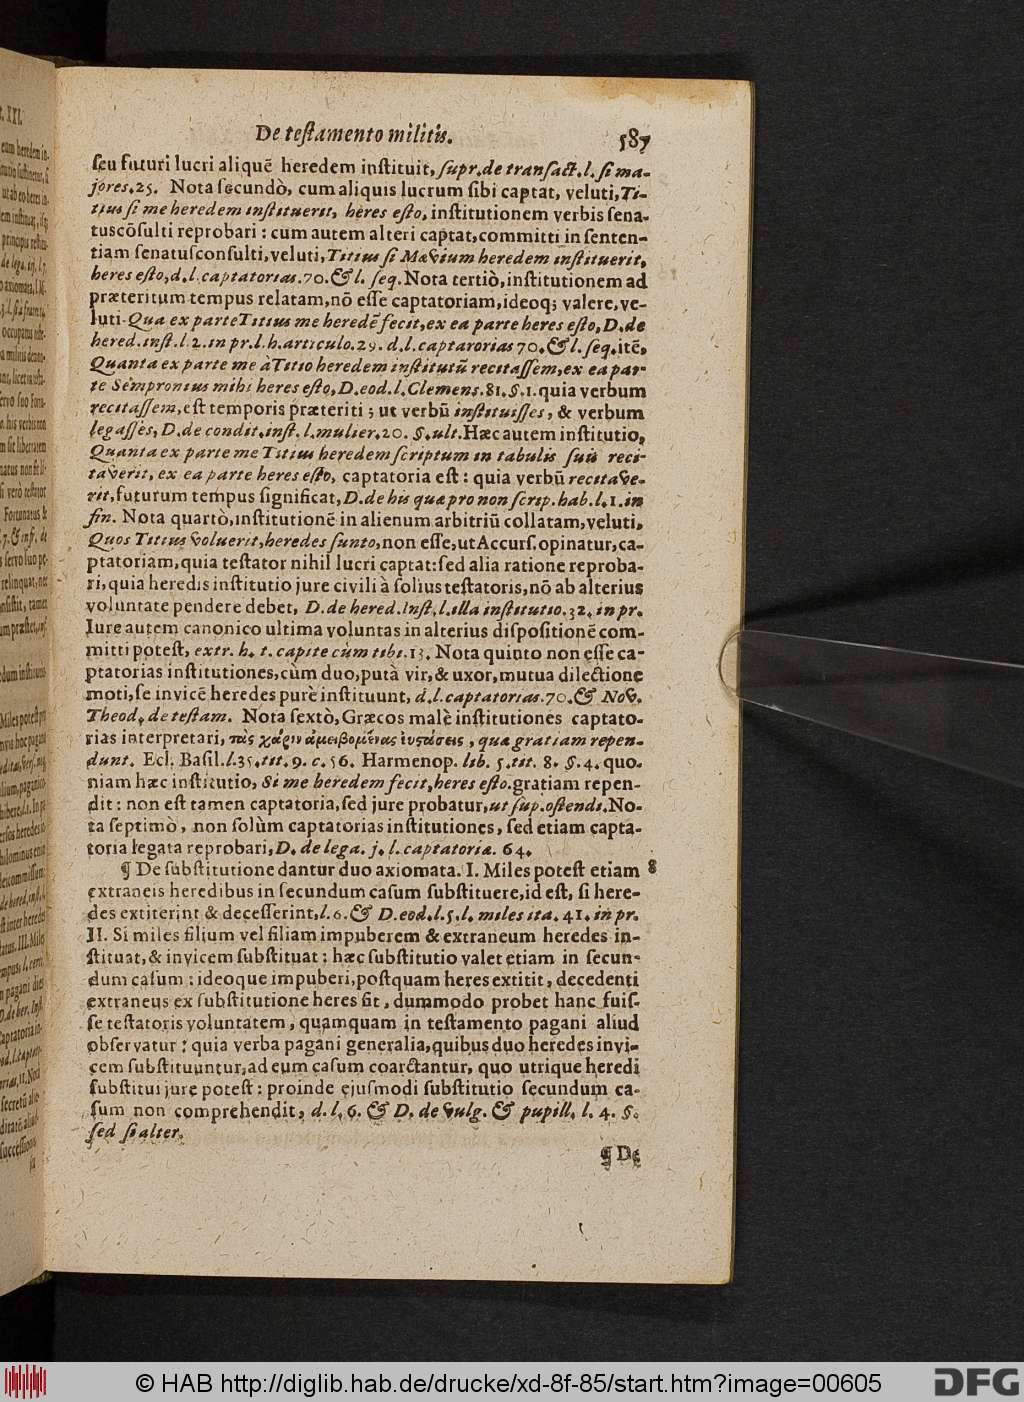 De testamento militis. 587
seu futuri lucri aliquē heredem instituit, supr. de transact. l. si ma-
jores. 25. Nota secundò, cum aliquis lucrum sibi captat, veluti, Ti-
tius si me heredem instituerit, heres esto, institutionem verbis sena-
tuscōsulti reprobari : cum autem alteri captat, committi in senten-
tiam senatusconsulti, veluti, Titius si Mævium heredem instituerit,
heres esto, d. l. captatorias. 70. & l. seq. Nota tertiò, institutionem ad
præteritum tempus relatam, nō esse captatoriam, ideoq; valere, ve-
luti. Qua ex parte Titius me heredē fecit, ex ea parte heres esto, D. de
hered. inst. l. 2. in pr. l. h. articulo. 29. d. l. captarorias 70. & l. seq. itē,
Quanta ex parte me à Titio heredem institutū recitassem, ex ea par-
te Sempronius mihi heres esto, D. eod. l. Clemens. 81. §. 1. quia verbum
recitassem, est temporis præteriti ; ut verbū instituisses, & verbum
legasses, D. de condit. inst. l. mulier. 20. §. ult. Hæc autem institutio,
Quanta ex parte me Titius heredem scriptum in tabulis suis reci-
taverit, ex ea parte heres esto, captatoria est : quia verbū recitave-
rit, futurum tempus significat, D. de his quæ pro non scrip. hab. l. 1. in
fin. Nota quartò, institutionē in alienum arbitriū collatam, veluti,
Quos Titius voluerit, heredes sunto, non esse, ut Accurs. opinatur, ca-
ptatoriam, quia testator nihil lucri captat: sed alia ratione reproba-
ri, quia heredis institutio jure civili à solius testatoris, nō ab alterius
voluntate pendere debet, D. de hered. Inst. l. illa institutio. 32. in pr.
Iure autem canonico ultima voluntas in alterius dispositionē com-
mitti potest, extr. h. t. capite cùm tibi. 13. Nota quinto non esse ca-
ptatorias institutiones, cùm duo, putà vir, & uxor, mutua dilectione
moti, se invicē heredes purè instituunt, d. l. captatorias. 70. & Nov.
Theod. de testam. Nota sextò, Græcos malè institutiones captato-
rias interpretari, τὰς χάριν ἀμειβομένας ἐνστάσεις, quæ gratiam repen-
dunt. Ecl. Basil. l. 35. tit. 9. c. 56. Harmenop. lib. 5. tit. 8. §. 4. quo-
niam hæc institutio, Si me heredem fecit, heres esto. gratiam repen-
dit : non est tamen captatoria, sed jure probatur, ut sup. ostendi. No-
ta septimò, non solùm captatorias institutiones, sed etiam capta-
toria legata reprobari, D. de lega. j. l. captatoriæ. 64.
¶ De substitutione dantur duo axiomata. I. Miles potest etiam 8
extraneis heredibus in secundum casum substituere, id est, si here-
des extiterint & decesserint, l. 6. & D. eod. l. 5. l. miles ita. 41. in pr.
II. Si miles filium vel filiam impuberem & extraneum heredes in-
stituat, & invicem substituat : hæc substitutio valet etiam in secun-
dum casum : ideoque impuberi, postquam heres extitit, decedenti
extraneus ex substitutione heres fit, dummodo probet hanc fuis-
se testatoris voluntatem, quamquam in testamento pagani aliud
observatur : quia verba pagani generalia, quibus duo heredes invi-
cem substituuntur, ad eum casum coarctantur, quo utrique heredi
substitui jure potest : proinde ejusmodi substitutio secundum ca-
sum non comprehendit, d. l. 6. & D. de vulg. & pupill. l. 4. §.
sed si alter.
¶ De
© HAB http://diglib.hab.de/drucke/xd-8f-85/start.htm?image=00605
DFG